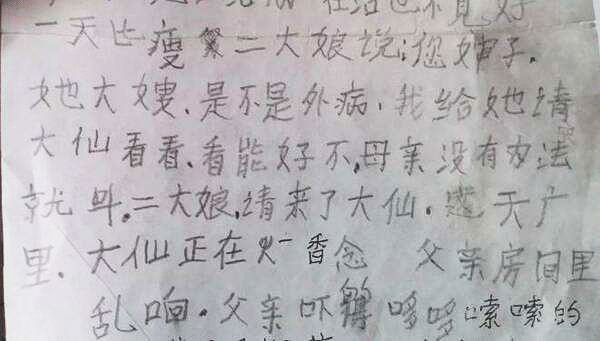 在治也不见好
一天比瘦繁二大娘说:您婶子,
她大嫂,是不是外病,我给她请
大仙看看,看能好不,母亲没有办法
就叫,二大娘,请来了大仙.天广
里.大仙正在火香念 父亲房间里
乱响.父亲吓得的哆哆嗦嗦的